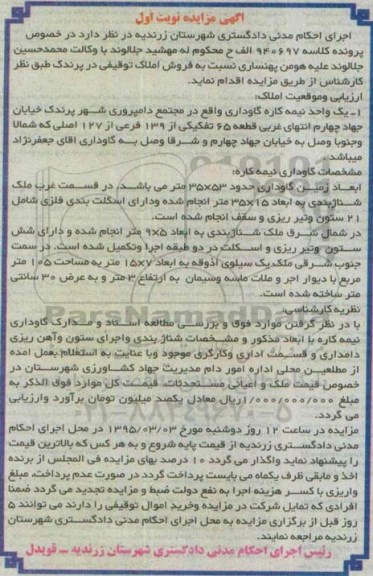 آگهی مزایده نوبت اول
اجرای احکام مدنی دادگستری شهرستان زرندیه در نظر دارد در خصوص
پرونده کلاسه ۹۴۰۶۹۷ الف ح محکوم له مهشید جلالوند با وکالت محمدحسین
جلالوند علیه هومن پهنساری نسبت به فروش املاک توقیفی در پرندک طبق نظر
کارشناس از طریق مزایده اقدام نماید.
ارزیابی وموقعیت املاک:
۱- یک واحد نیمه کاره گاوداری واقع در مجتمع دامپروری شهر پرندک خیابان
جهاد چهارم انتهای غربی قطعه ۶۵ تفکیکی از ۱۳۹ فرعی از ۱۲۷ اصلی که شمالا
وجنوبا وصل به خیابان جهاد چهارم و شرقا وصل به گاوداری اقای جعفرنژاد
میباشد.
مشخصات گاوداری نیمه کاره:
ابعاد زمین گاوداری حدود ۳۵x۵۳ متر می باشد. در قسمت غرب ملک
شناژبندی به ابعاد ۳۵x۱۵ متر انجام شده ودارای اسکلت بندی فلزی شامل
۲۱ ستون وتیر ریزی و سقف انجام شده است.
در شمال شرق ملک شناژبندی به ابعاد ۹x۵ متر انجام شده و دارای شش
ستون وتیر ریزی و اسکلت در دو طبقه اجرا وتکمیل شده است. در سمت
جنوب شرقی ملک یک سیلوی آذوقه به ابعاد ۱۵x۷ متر به مساحت ۱۰۵ متر
مربع با دیوار اجر و ملات ماسه وسیمان به ارتفاع ۳ متر و به عرض ۳۰ سانتی
متر ساخته شده است.
نظریه کارشناسی:
با در نظر گرفتن موارد فوق و بررسی مطالعه اسناد و مدارک گاوداری
نیمه کاره با ابعاد مذکور و مشخصات شناژ بندی واجرای ستون وآهن ریزی
دامداری و قسمت اداری وکارگری موجود وبا عنایت به استعلام بعمل امده
از مطلعین محلی اداره امور دام مدیریت جهاد کشاورزی شهرستان در
خصوص قیمت ملک و اعیانی مستحدثات قیمت کل موارد فوق الذکر به
مبلغ ۱/۰۰۰/۰۰۰/۰۰۰ریال معادل یکصد میلیون تومان برآورد وارزیابی
می گردد.
مزایده در ساعت ۱۲ روز دوشنبه مورخ ۱۳۹۵/۰۳/۰۳ در محل اجرای احکام
مدنی دادگستری زرندیه از قیمت پایه شروع و به هر کس که بالاترین قیمت
را پیشنهاد نماید واگذار می گردد ۱۰ درصد بهای مزایده فی المجلس از برنده
اخذ و مابقی ظرف یکماه می بایست پرداخت گردد در صورت عدم پرداخت، مبلغ
واریزی با کسر هزینه اجرا به نفع دولت ضبط و مزایده تجدید می گردد ضمنا
افرادی که تمایل شرکت در مزایده وخرید اموال توقیفی را دارند می توانند ۵
روز قبل از برگزاری مزایده به محل اجرای احکام مدنی دادگستری شهرستان
زرندیه مراجعه نمایند.
رئیس اجرای احکام مدنی دادگستری شهرستان زرندیه – قویدل
ParsNamadData
۰۲۱-۸۸۳۴۹۶۷۰-۵